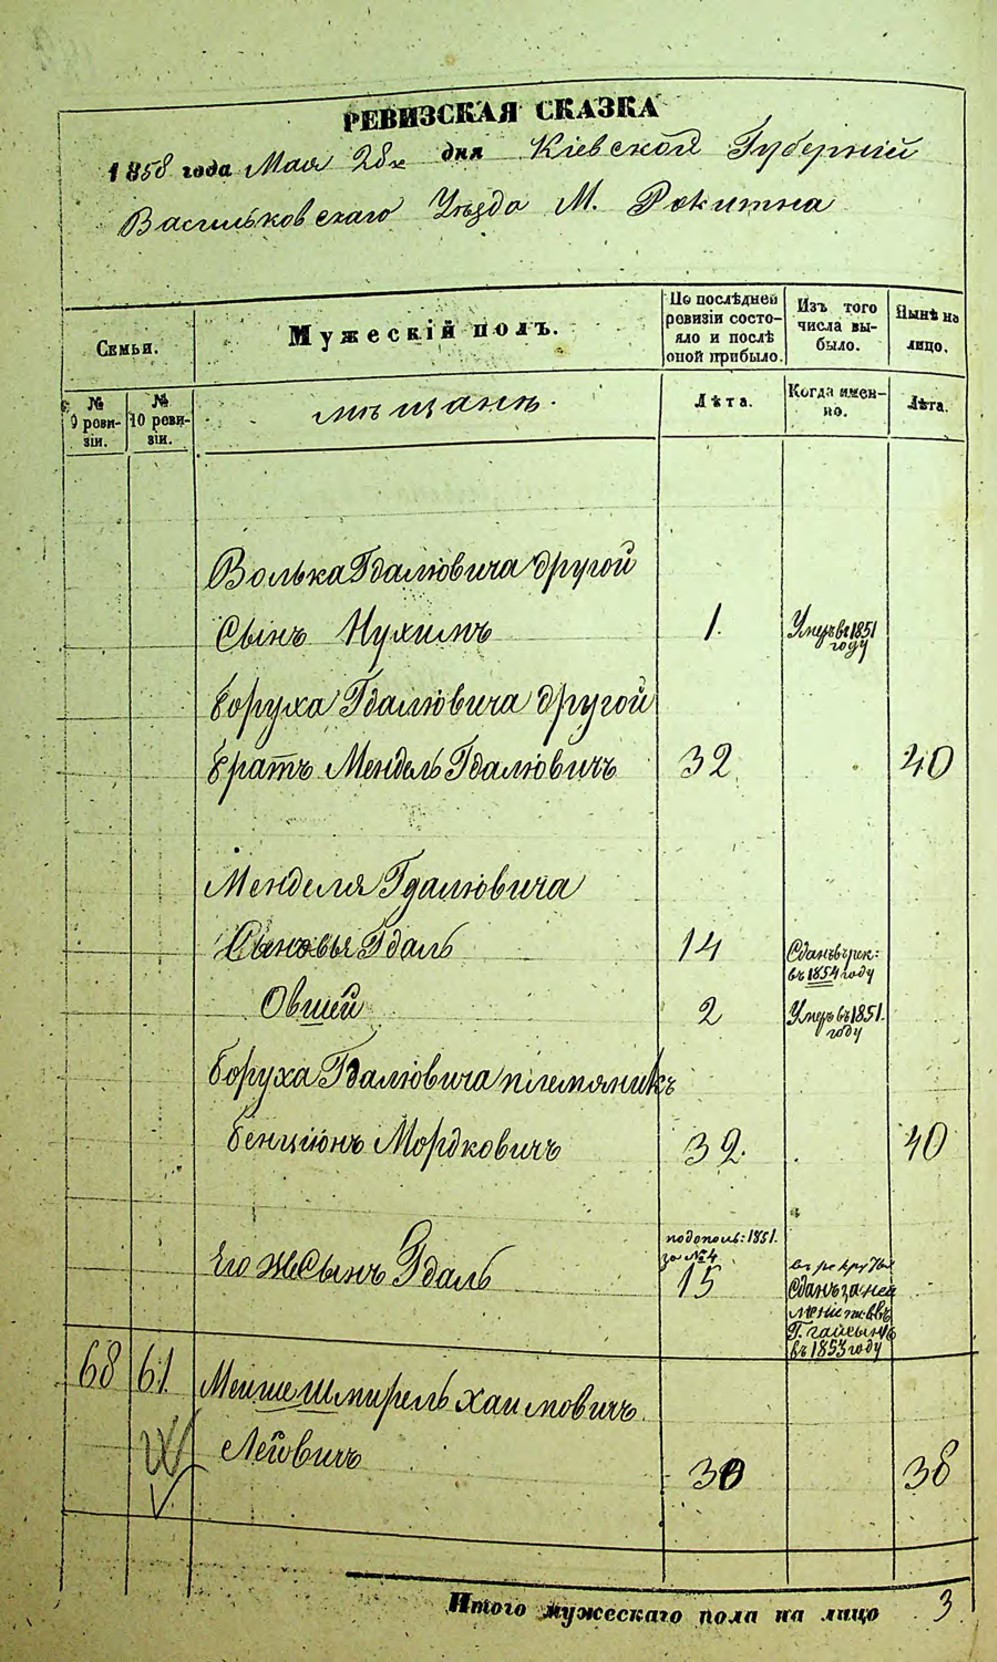 РЕВИЗСКАЯ СКАЗКА
1858 года Мая 28го дня Кіевской Губерніи
Васильковскаго Уѣзда М. Рокитна
Семьи.
Мужескій полъ.
По послѣдней ревизіи состояло и послѣ оной прибыло.
Изъ того числа выбыло.
Нынѣ на лицо.
№ 9 ревизіи.
№ 10 ревизіи.
мѣщане.
Лѣта.
Когда именно.
Лѣта.
Волька Гдалювича другой
Сынъ Нухимъ 1. Умеръ въ 1851 году
Боруха Гдалювича другой
братъ Мендель Гдалювичъ 32 40
Менделя Гдалювича
Сыновья Гдаль 14 Сданъ в рек: въ 1854 году
Овшей 2 Умеръ въ 1851. году
Боруха Гдалювича племяникъ
Бенціонъ Мордковичъ 32. 40
подополь: 1851. за № 4
Его же Сынъ Гдаль 15 в рекруты Сданъ за въ Г. Гайсынѣ въ 1853 году
68 61 Мейше Шмирель Хаимовичъ
Лейовичъ 30 38
Итого мужескаго пола на лицо 3